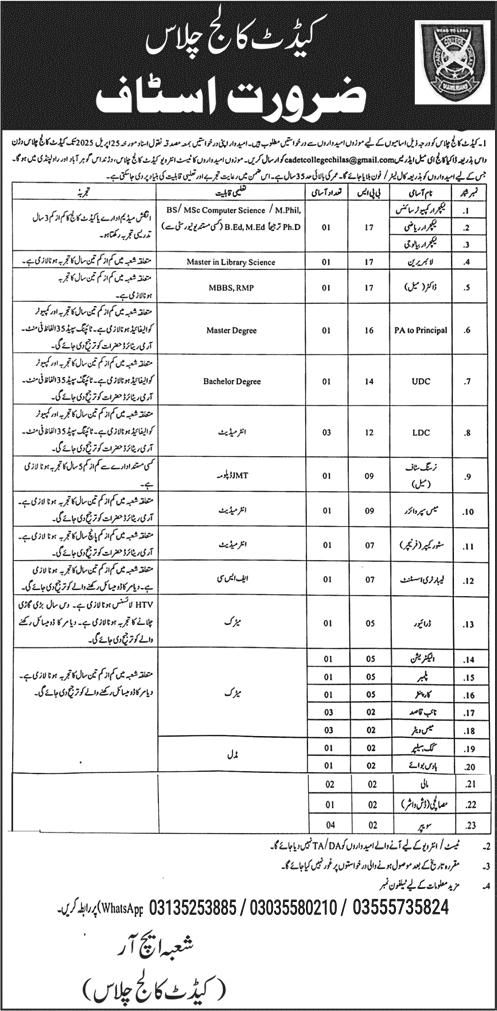 کیڈٹ کالج چلاس
ضرورت اسٹاف
1۔ کیڈٹ کالج چلاس کو درجہ ذیل اسامیوں کے لیے موزوں امیدواروں سے درخواستیں مطلوب ہیں۔ امیدوار اپنی درخواستیں بمعہ مصدقہ نقول اسناد مورخہ 25 اپریل 2025 تک کیڈٹ کالج چلاس وژن
واس بذریعہ ڈاک یا کالج ای میل ایڈریس cadetcollegechilas@gmail.com ارسال کریں۔ موزوں امیدواروں کا ٹیسٹ انٹرویو کیڈٹ کالج چلاس، وژنداس گوہر آباد اور راولپنڈی میں ہوگا۔
جس کے لیے امیدواروں کو بذریعہ کال لیٹر / فون بلایا جائے گا۔ عمر کی بالائی حد 35 سال ہے۔ اس ضمن میں رعایت تجربے اور تعلیمی قابلیت کی بنیاد پر دی جا سکتی ہے۔
نمبر شمار نام آسامی بی پی ایس تعداد آسامی تعلیمی قابلیت تجربہ
1. لیکچرار کمپیوٹر سائنس
2. لیکچرار ریاضی
3. لیکچرار بیالوجی
17 01 BS/ MSc Computer Science / M.Phil,
Ph.D ترجیحاً B.Ed, M.Ed (کسی مستند یونیورسٹی سے)
انگلش میڈیم ادارے یا کیڈٹ کالج کا کم از کم 3 سال
تدریسی تجربہ رکھتا ہو۔
4. لائبریرین 17 01 Master in Library Science متعلقہ شعبہ میں کم از کم تین سال کا تجربہ ہونا لازمی ہے۔
5. ڈاکٹر (میل) 17 01 MBBS, RMP متعلقہ شعبہ میں کم از کم تین سال کا تجربہ
ہونا لازمی ہے۔
6. PA to Principal 16 01 Master Degree متعلقہ شعبہ میں کم از کم تین سال کا تجربہ اور کمپیوٹر
کوالیفائیڈ ہونا لازمی ہے۔ ٹائپنگ سپیڈ 35 الفاظ فی منٹ۔
آرمی ریٹائرڈ حضرات کو ترجیح دی جائے گی۔
7. UDC 14 01 Bachelor Degree متعلقہ شعبہ میں کم از کم تین سال کا تجربہ اور کمپیوٹر
کوالیفائیڈ ہونا لازمی ہے۔ ٹائپنگ سپیڈ 35 الفاظ فی منٹ۔
آرمی ریٹائرڈ حضرات کو ترجیح دی جائے گی۔
8. LDC 12 03 انٹرمیڈیٹ متعلقہ شعبہ میں کم از کم تین سال کا تجربہ اور کمپیوٹر
کوالیفائیڈ ہونا لازمی ہے۔ ٹائپنگ سپیڈ 35 الفاظ فی منٹ۔
آرمی ریٹائرڈ حضرات کو ترجیح دی جائے گی۔
9. نرسنگ سٹاف
(میل) 09 01 JMT ڈپلومہ کسی مستند ادارے سے کم از کم 5 سال کا تجربہ ہونا لازمی
ہے۔
10. میس سپروائزر 09 01 انٹرمیڈیٹ متعلقہ شعبہ میں کم از کم تین سال کا تجربہ ہونا لازمی ہے۔
آرمی ریٹائرڈ حضرات کو ترجیح دی جائے گی۔
11. سٹور کیپر (فرنیچر) 07 01 انٹرمیڈیٹ متعلقہ شعبہ میں کم از کم پانچ سال کا تجربہ ہونا لازمی ہے۔
آرمی ریٹائرڈ حضرات کو ترجیح دی جائے گی۔
12. لیبارٹری اسسٹنٹ 07 01 ایف ایس سی متعلقہ شعبہ میں کم از کم تین سال کا تجربہ ہونا لازمی
ہے۔ دیامر کا ڈومیسائل رکھنے والے کو ترجیح دی جائے گی۔
13. ڈرائیور 05 01 میٹرک HTV لائسنس ہونا لازمی ہے۔ دس سال بڑی گاڑی
چلانے کا تجربہ ہونا لازمی ہے۔ دیامر کا ڈومیسائل رکھنے
والے کو ترجیح دی جائے گی۔
14. الیکٹریشن 05 01
15. پلمبر 05 01
16. کارپینٹر 05 01
17. نائب قاصد 02 03
18. میس ویٹر 02 03
میٹرک
متعلقہ شعبہ میں کم از کم تین سال کا تجربہ ہونا لازمی ہے۔
دیامر کا ڈومیسائل رکھنے والے کو ترجیح دی جائے گی۔
19. کک ہیلپر 02 01
20. ہاوس بوائے 02 01
مڈل
21. مالی 02 02
22. مصالچی (ڈش واشر) 02 01
23. سویپر 02 04
2۔ ٹیسٹ / انٹرویو کے لیے آنے والے امیدواروں کو TA/DA نہیں دیا جائے گا۔
3۔ مقررہ تاریخ کے بعد موصول ہونے والی درخواستوں پر غور نہیں کیا جائے گا۔
4۔ مزید معلومات کے لیے ٹیلیفون نمبر
03135253885 / 03035580210 / 03555735824 (WhatsApp) پر رابطہ کریں۔
شعبہ ایچ آر
(کیڈٹ کالج چلاس)